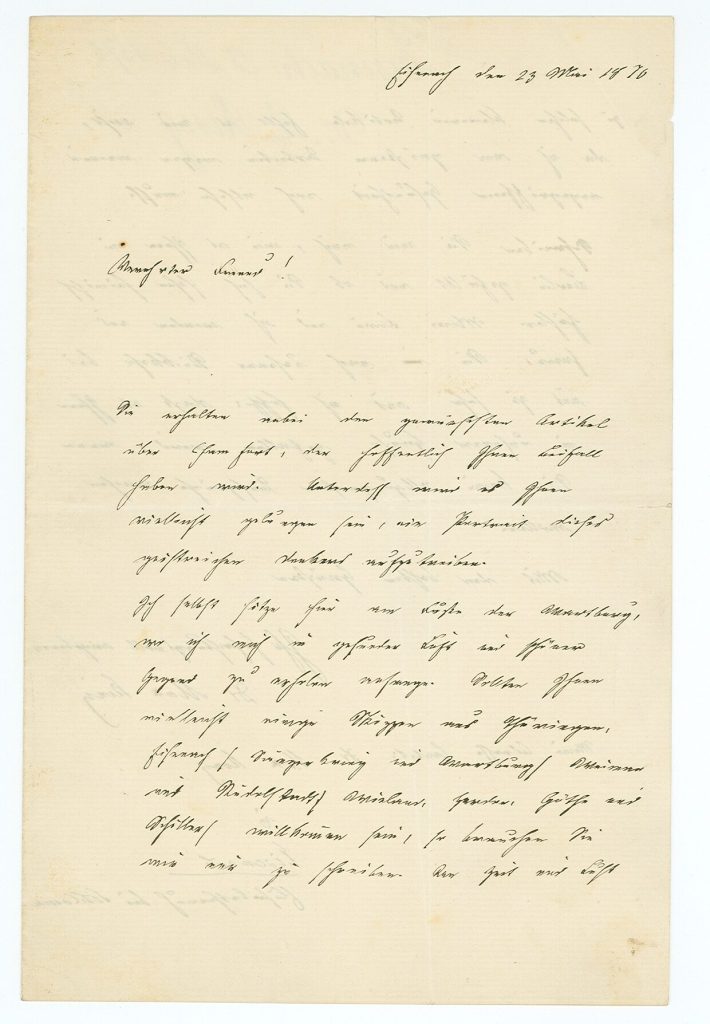 Eisenach den 23 Mai 1870
Verehrter Freund!
Sie erhalten anbei den gewünschten Artikel
über Chamfort, der hoffentlich Ihren Beifall
haben wird. Unterdeß wird es Ihnen
vielleicht gelungen sein, ein Portrait dieses
geistreichen Denkers aufzutreiben.
Ich selbst sitze hier am Fuße der Wartburg,
wo ich mich in gesunder Luft und schöner
Gegend zu erholen anfange. Sollten Ihnen
vielleicht einige Skizzen aus Thüringen,
Eisenach / Sängerkrieg und Wartburg / Weimar
und Rudolstadt / Wieland, Herder, Göthe und
Schiller / willkommen sein, so brauchen Sie
mir nur zu schreiben. Zeit und Lust